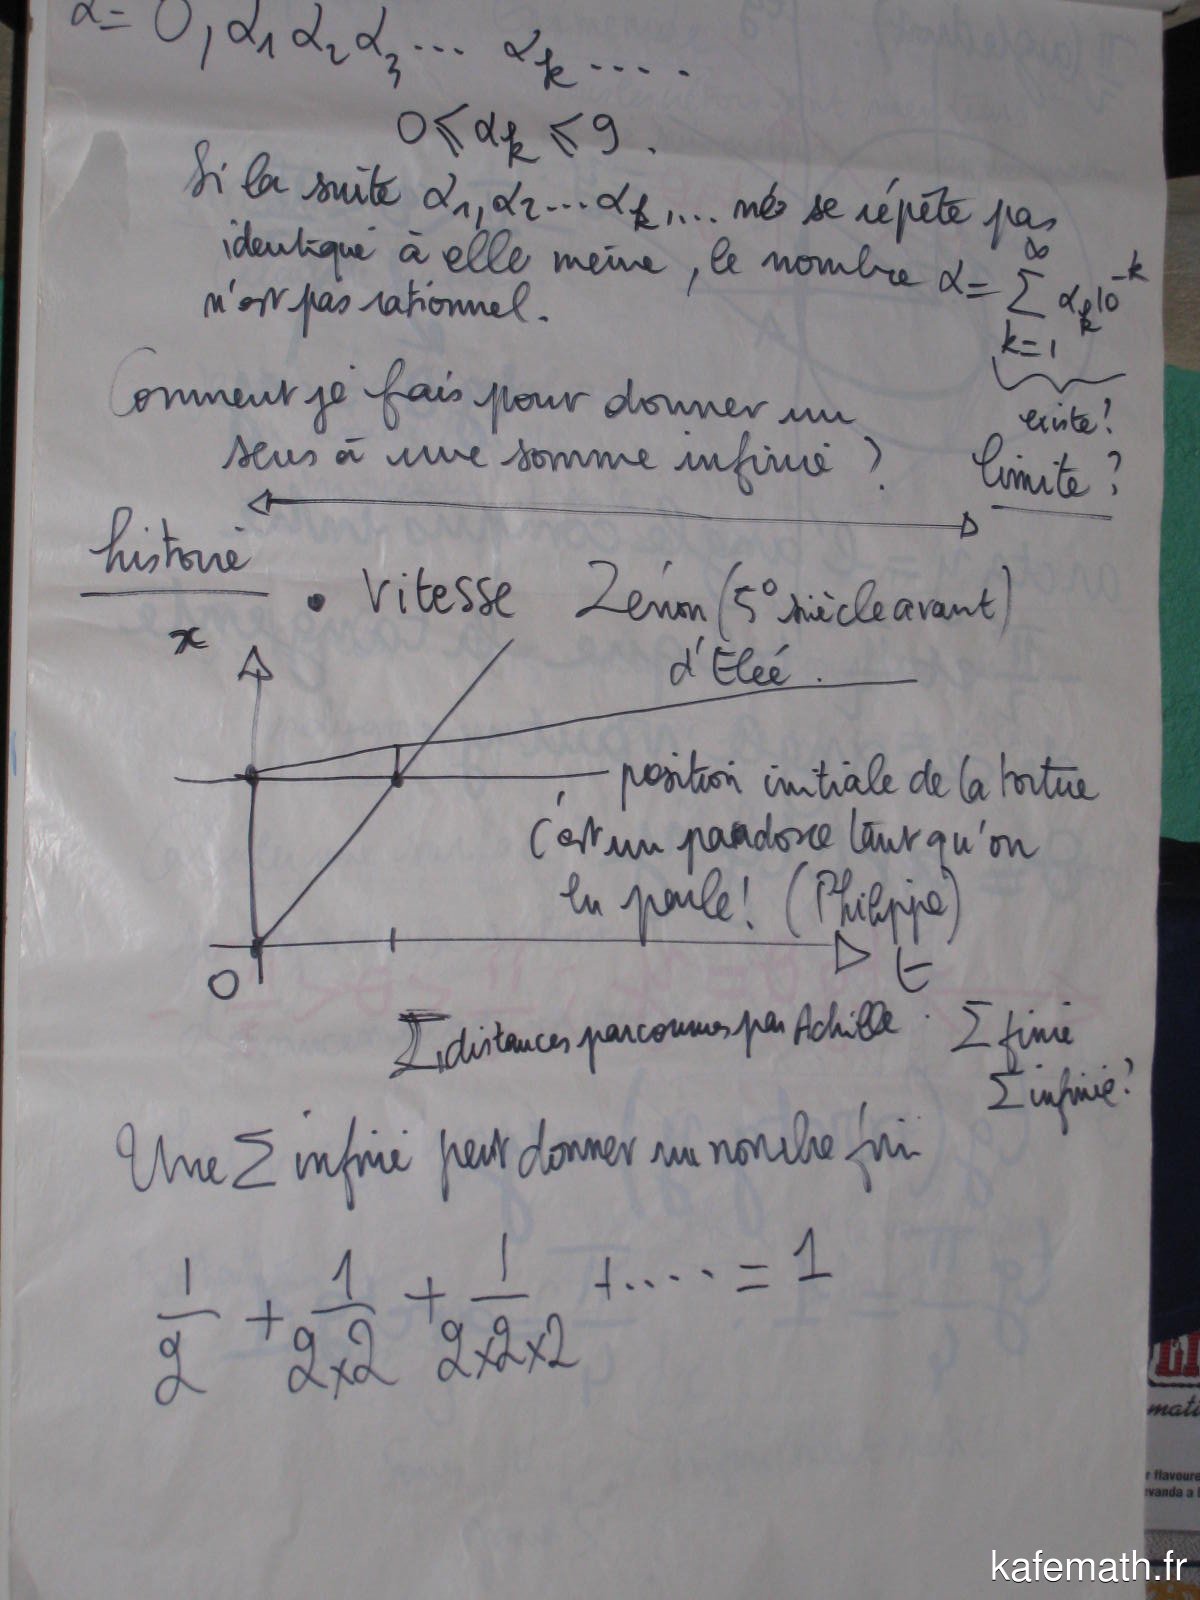 α = 0, α₁ α₂ α₃ ... αₖ .....
0 ⩽ αₖ ⩽ 9 .
Si la suite α₁, α₂ ... αₖ, ... ne se répète pas
identique à elle même, le nombre α = ∑ αₖ 10⁻ᵏ
∞
k=1
n'est pas rationnel.
existe?
Comment je fais pour donner un
sens à une somme infinie ?
limite ?
histoire
• Vitesse Zénon (5° siècle avant)
d'Elée .
x
position initiale de la tortue
C'est un paradoxe tant qu'on
en parle ! (Philippe)
0
t
∑ distances parcourues par Achille . ∑ finie
∑ infinie ?
Une ∑ infinie peut donner un nombre fini
1/2 + 1/2×2 + 1/2×2×2 + .... = 1
mati
flavoure
vanda a
kafemath.fr